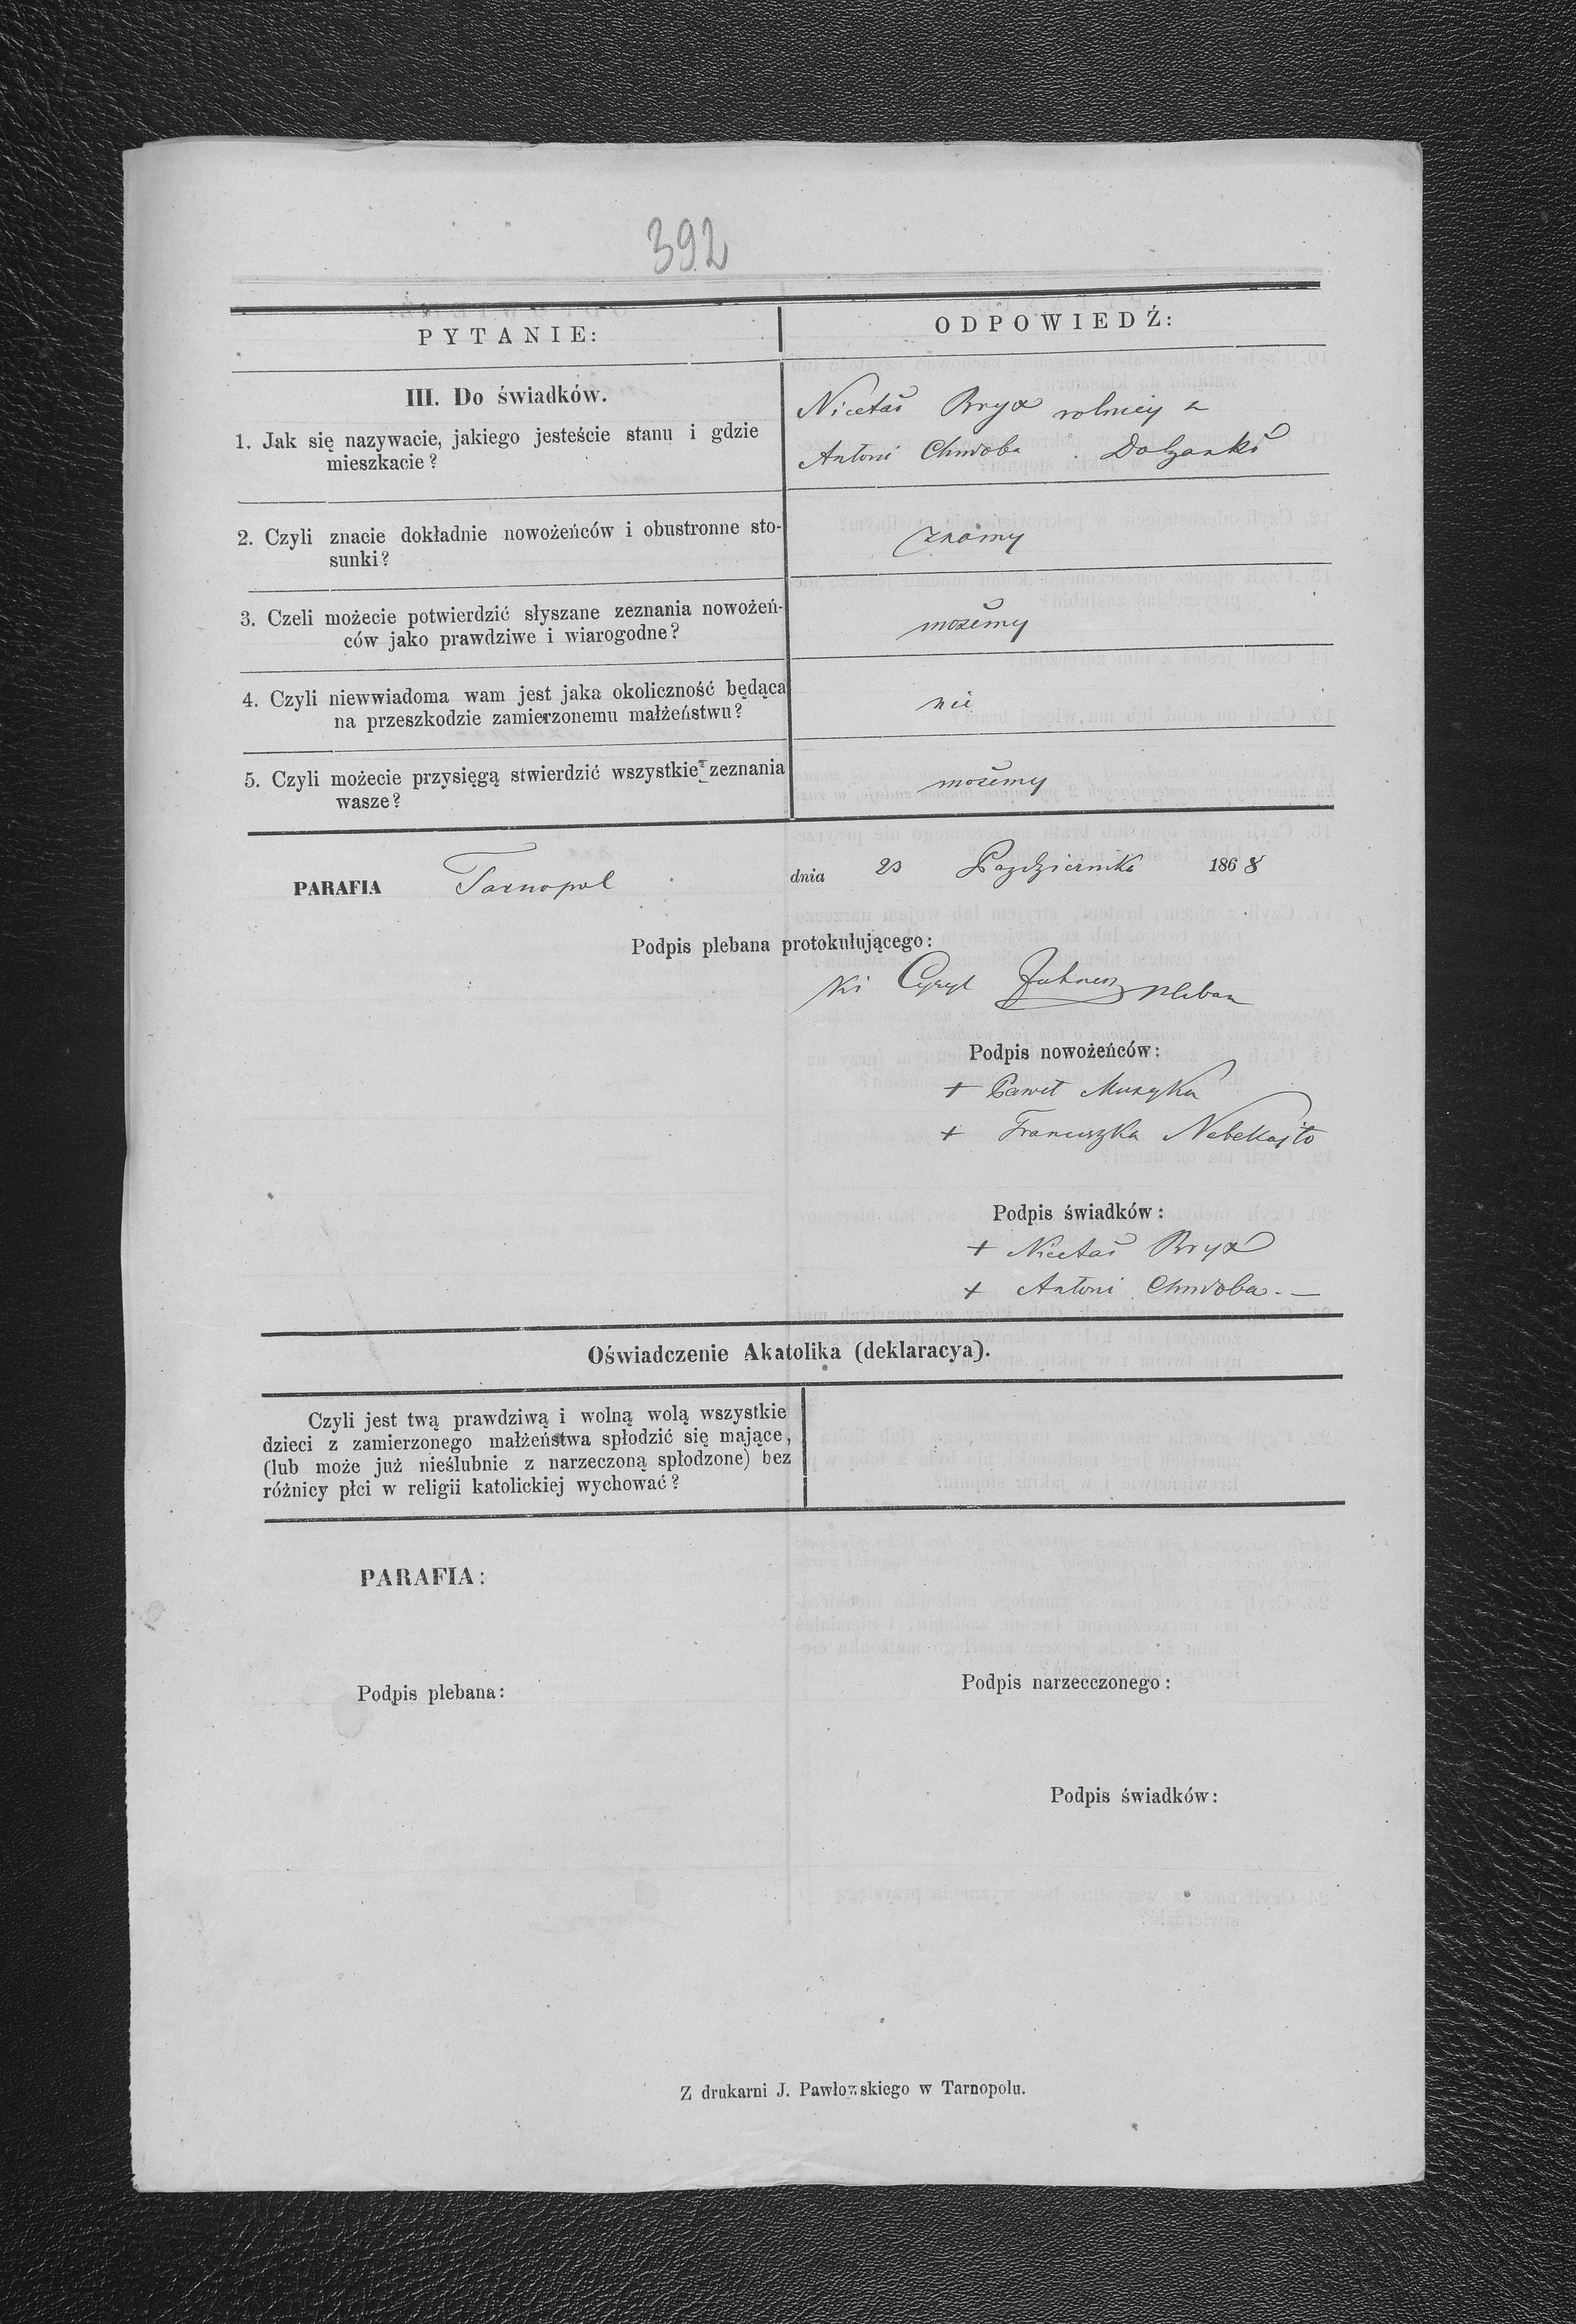 392
PYTANIE:
ODPOWIEDŹ:
III. Do świadków.
1. Jak się nazywacie, jakiego jesteście stanu i gdzie
mieszkacie?
Nicetaś Bryx rolnicy z
Antoni Chmoba Dolzanki
2. Czyli znacie dokładnie nowożeńców i obustronne sto-
sunki?
znamy
3. Czeli możecie potwierdzić słyszane zeznania nowożeń-
ców jako prawdziwe i wiarogodne?
możemy
4. Czyli niewwiadoma wam jest jaka okoliczność będąca
na przeszkodzie zamierzonemu małżeństwu?
nie
5. Czyli możecie przysięgą stwierdzić wszystkie zeznania
wasze?
możemy
PARAFIA Tarnopol dnia 23 Października 1868
Podpis plebana protokułującego:
Cyryl pleban
Podpis nowożeńców:
+ Paweł Muzyka
+ Franciszka Nebekajło
Podpis świadków:
+ Nicetaś Bryx
+ Antoni Chmoba. —
Oświadczenie Akatolika (deklaracya).
Czyli jest twą prawdziwą i wolną wolą wszystkie
dzieci z zamierzonego małżeństwa spłodzić się mające,
(lub może już nieślubnie z narzeczoną spłodzone) bez
różnicy płci w religii katolickiej wychować?
PARAFIA:
Podpis plebana:
Podpis narzecczonego:
Podpis świadków:
Z drukarni J. Pawłowskiego w Tarnopolu.